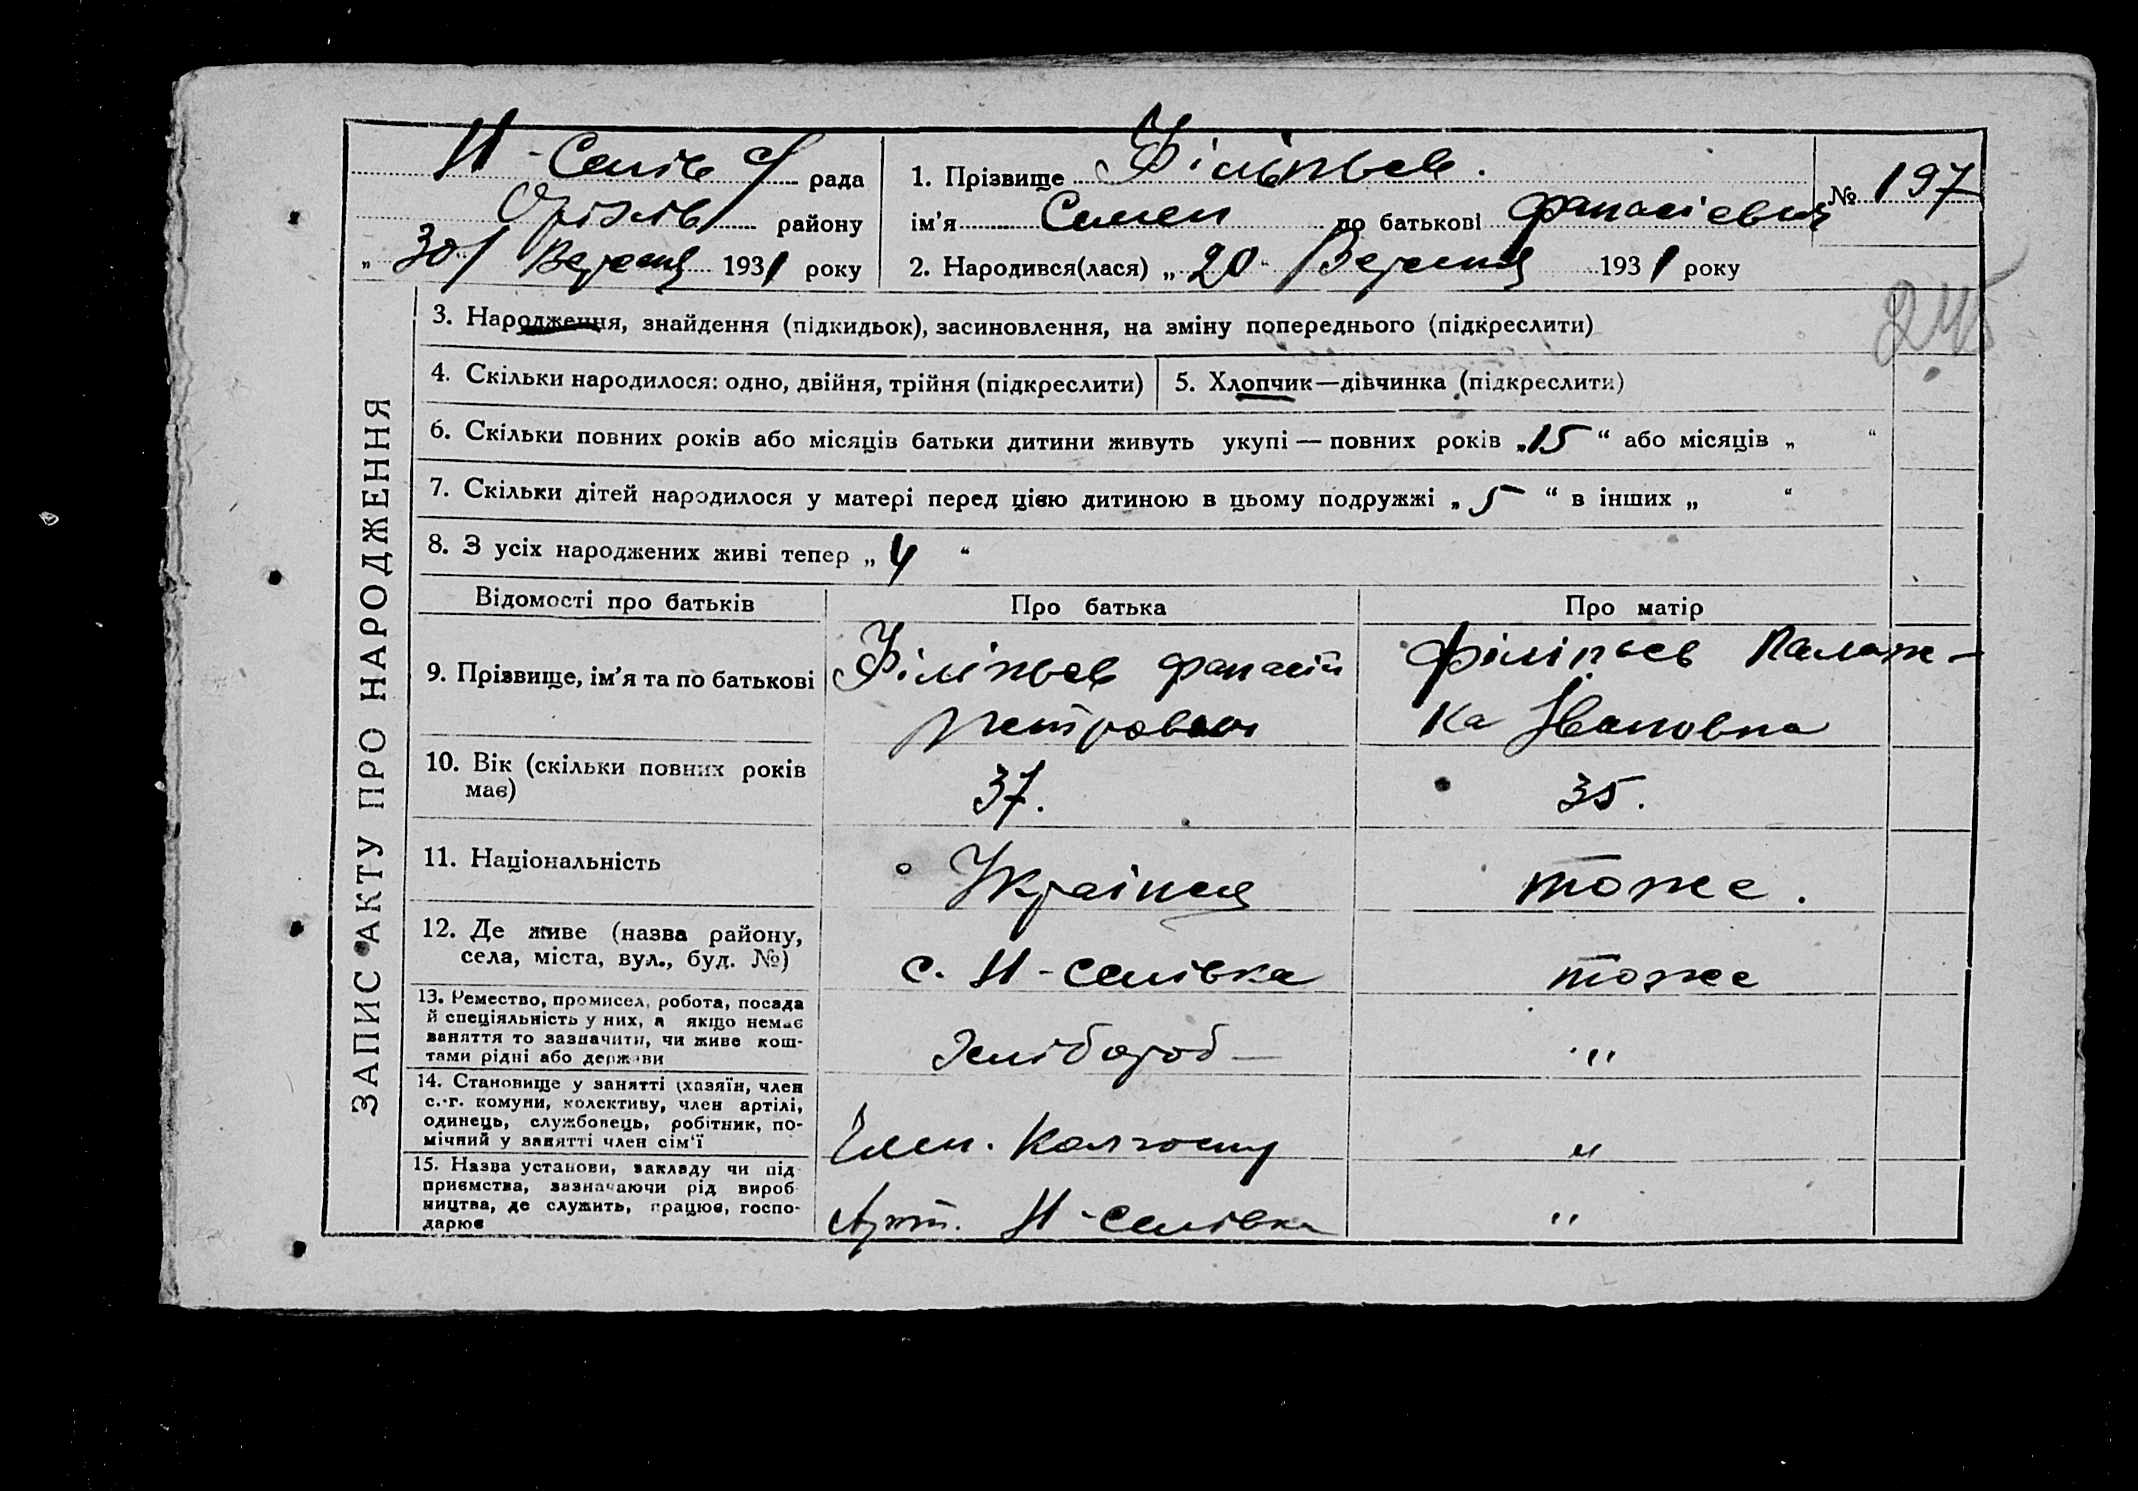 Н-Селів с/ рада
Орілів району
„ 30/ Вересня 1931 року
1. Прізвище Філіпьев.
ім'я Семен по батькові Фанасієвич
№ 197
2. Народився(лася) „ 20 “ Вересня 1931 року
245
ЗАПИС АКТУ ПРО НАРОДЖЕННЯ
3. Народження, знайдення (підкидьок), засиновлення, на зміну попереднього (підкреслити)
4. Скільки народилося: одно, двійня, трійня (підкреслити)
5. Хлопчик—дівчинка (підкреслити)
6. Скільки повних років або місяців батьки дитини живуть укупі — повних років „15“ або місяців „ “
7. Скільки дітей народилося у матері перед цією дитиною в цьому подружжі „ 5 “ в інших „ “
8. З усіх народжених живі тепер „ 4 “
Відомості про батьків
Про батька
Про матір
9. Прізвище, ім'я та по батькові
Філіпьев Фанасій
Петрович
Філіпьев Палаж-
ка Івановна
10. Вік (скільки повних років
має)
37.
35.
11. Національність
Українця
тоже.
12. Де живе (назва району,
села, міста, вул., буд. №)
с. Н-Селівка
тоже
13. Ремество, промисел, робота, посада
й спеціяльність у них, а якщо немає
заняття то зазначити, чи живе кош-
тами рідні або держави
Хлібороб —
"
14. Становище у занятті (хазяїн, член
с.-г. комуни, колективу, член артілі,
одинець, службовець, робітник, по-
мічний у занятті член сім'ї
Член. Колгоспу
"
15. Назва установи, закладу чи під
приємства, зазначаючи рід вироб
ництва, де служить, працює, госпо-
дарює
Арт. Н-Селівка
"